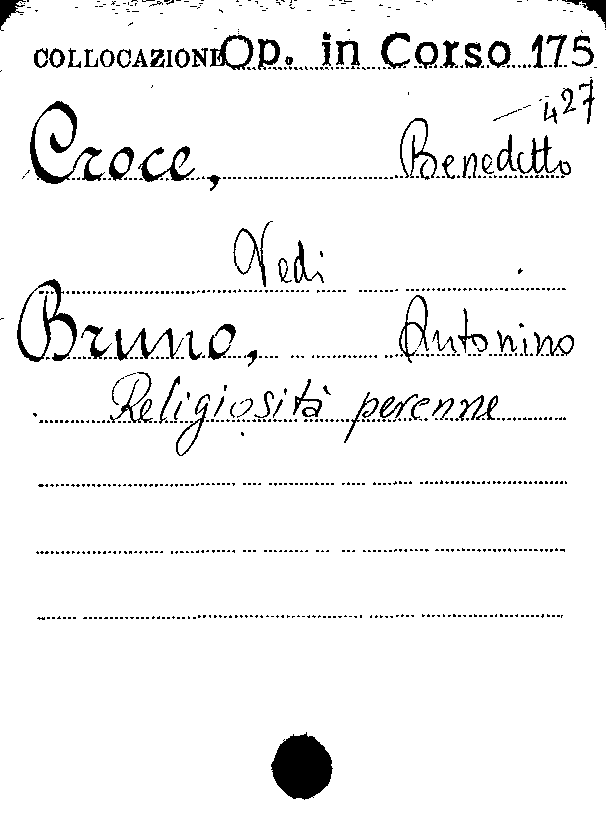 COLLOCAZIONE Op. in Corso 175
— 427
Croce, Benedetto
Vedi
Bruno, Antonino
Religiosità perenne